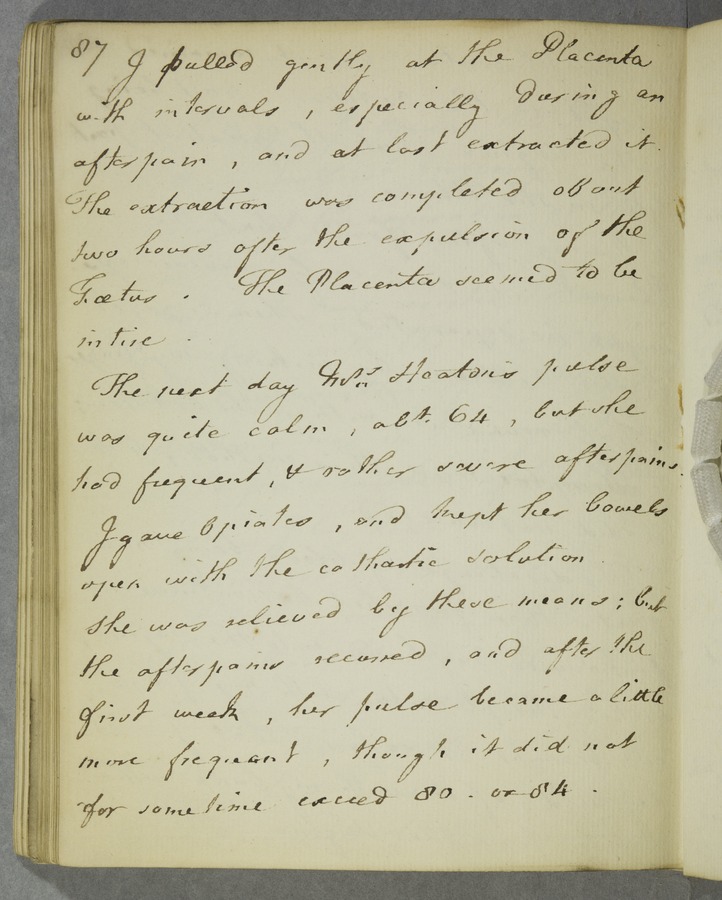 87 I pulled gently at the Placenta
with intervals, especially during an
afterpain, and at last extracted it.
The extraction was completed about
two hours after the expulsion of the
Fœtus. The Placenta seemed to be
intire.
The next day Mrs. Heaton's pulse
was quite calm, abt. 64, but she
had frequent, & rather severe afterpains.
I gave Opiates, and kept her bowels
open with the cathartic solution
She was relieved by these means; but
the afterpains recurred, and after the
first week, her pulse became a little
more frequent, though it did not
for some time exceed 80. or 84.